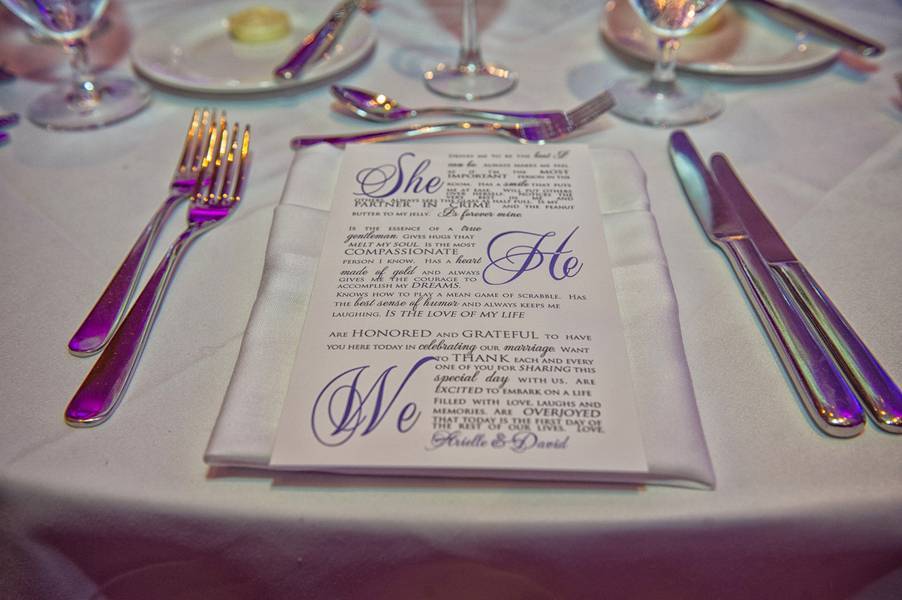 She
DRIVES ME TO BE THE best I
can be. ALWAYS MAKES ME FEEL
AS IF I'M THE MOST
IMPORTANT PERSON IN THE
ROOM. HAS A smile THAT PUTS
ME AT EASE. WILL PUT OTHERS
BEFORE HERSELF. NOTICES THE
VERY BEST IN ME AND
OTHERS. ALWAYS SEES THE GLASS AS HALF FULL. IS MY
PARTNER IN CRIME AND THE PEANUT
BUTTER TO MY JELLY. Is forever mine.
He
IS THE ESSENCE OF A true
gentleman. GIVES HUGS THAT
MELT MY SOUL. IS THE MOST
COMPASSIONATE
PERSON I KNOW. HAS A heart
made of gold AND ALWAYS
GIVES ME THE COURAGE TO
ACCOMPLISH MY DREAMS.
KNOWS HOW TO PLAY A MEAN GAME OF SCRABBLE. HAS
THE best sense of humor AND ALWAYS KEEPS ME
LAUGHING. IS THE LOVE OF MY LIFE
We
ARE HONORED AND GRATEFUL TO HAVE
YOU HERE TODAY IN celebrating OUR marriage. WANT
TO THANK EACH AND EVERY
ONE OF YOU FOR SHARING THIS
special day WITH US. ARE
EXCITED TO EMBARK ON A LIFE
FILLED WITH LOVE, LAUGHS AND
MEMORIES. ARE OVERJOYED
THAT TODAY IS THE FIRST DAY OF
THE REST OF OUR LIVES. LOVE,
Arielle & David